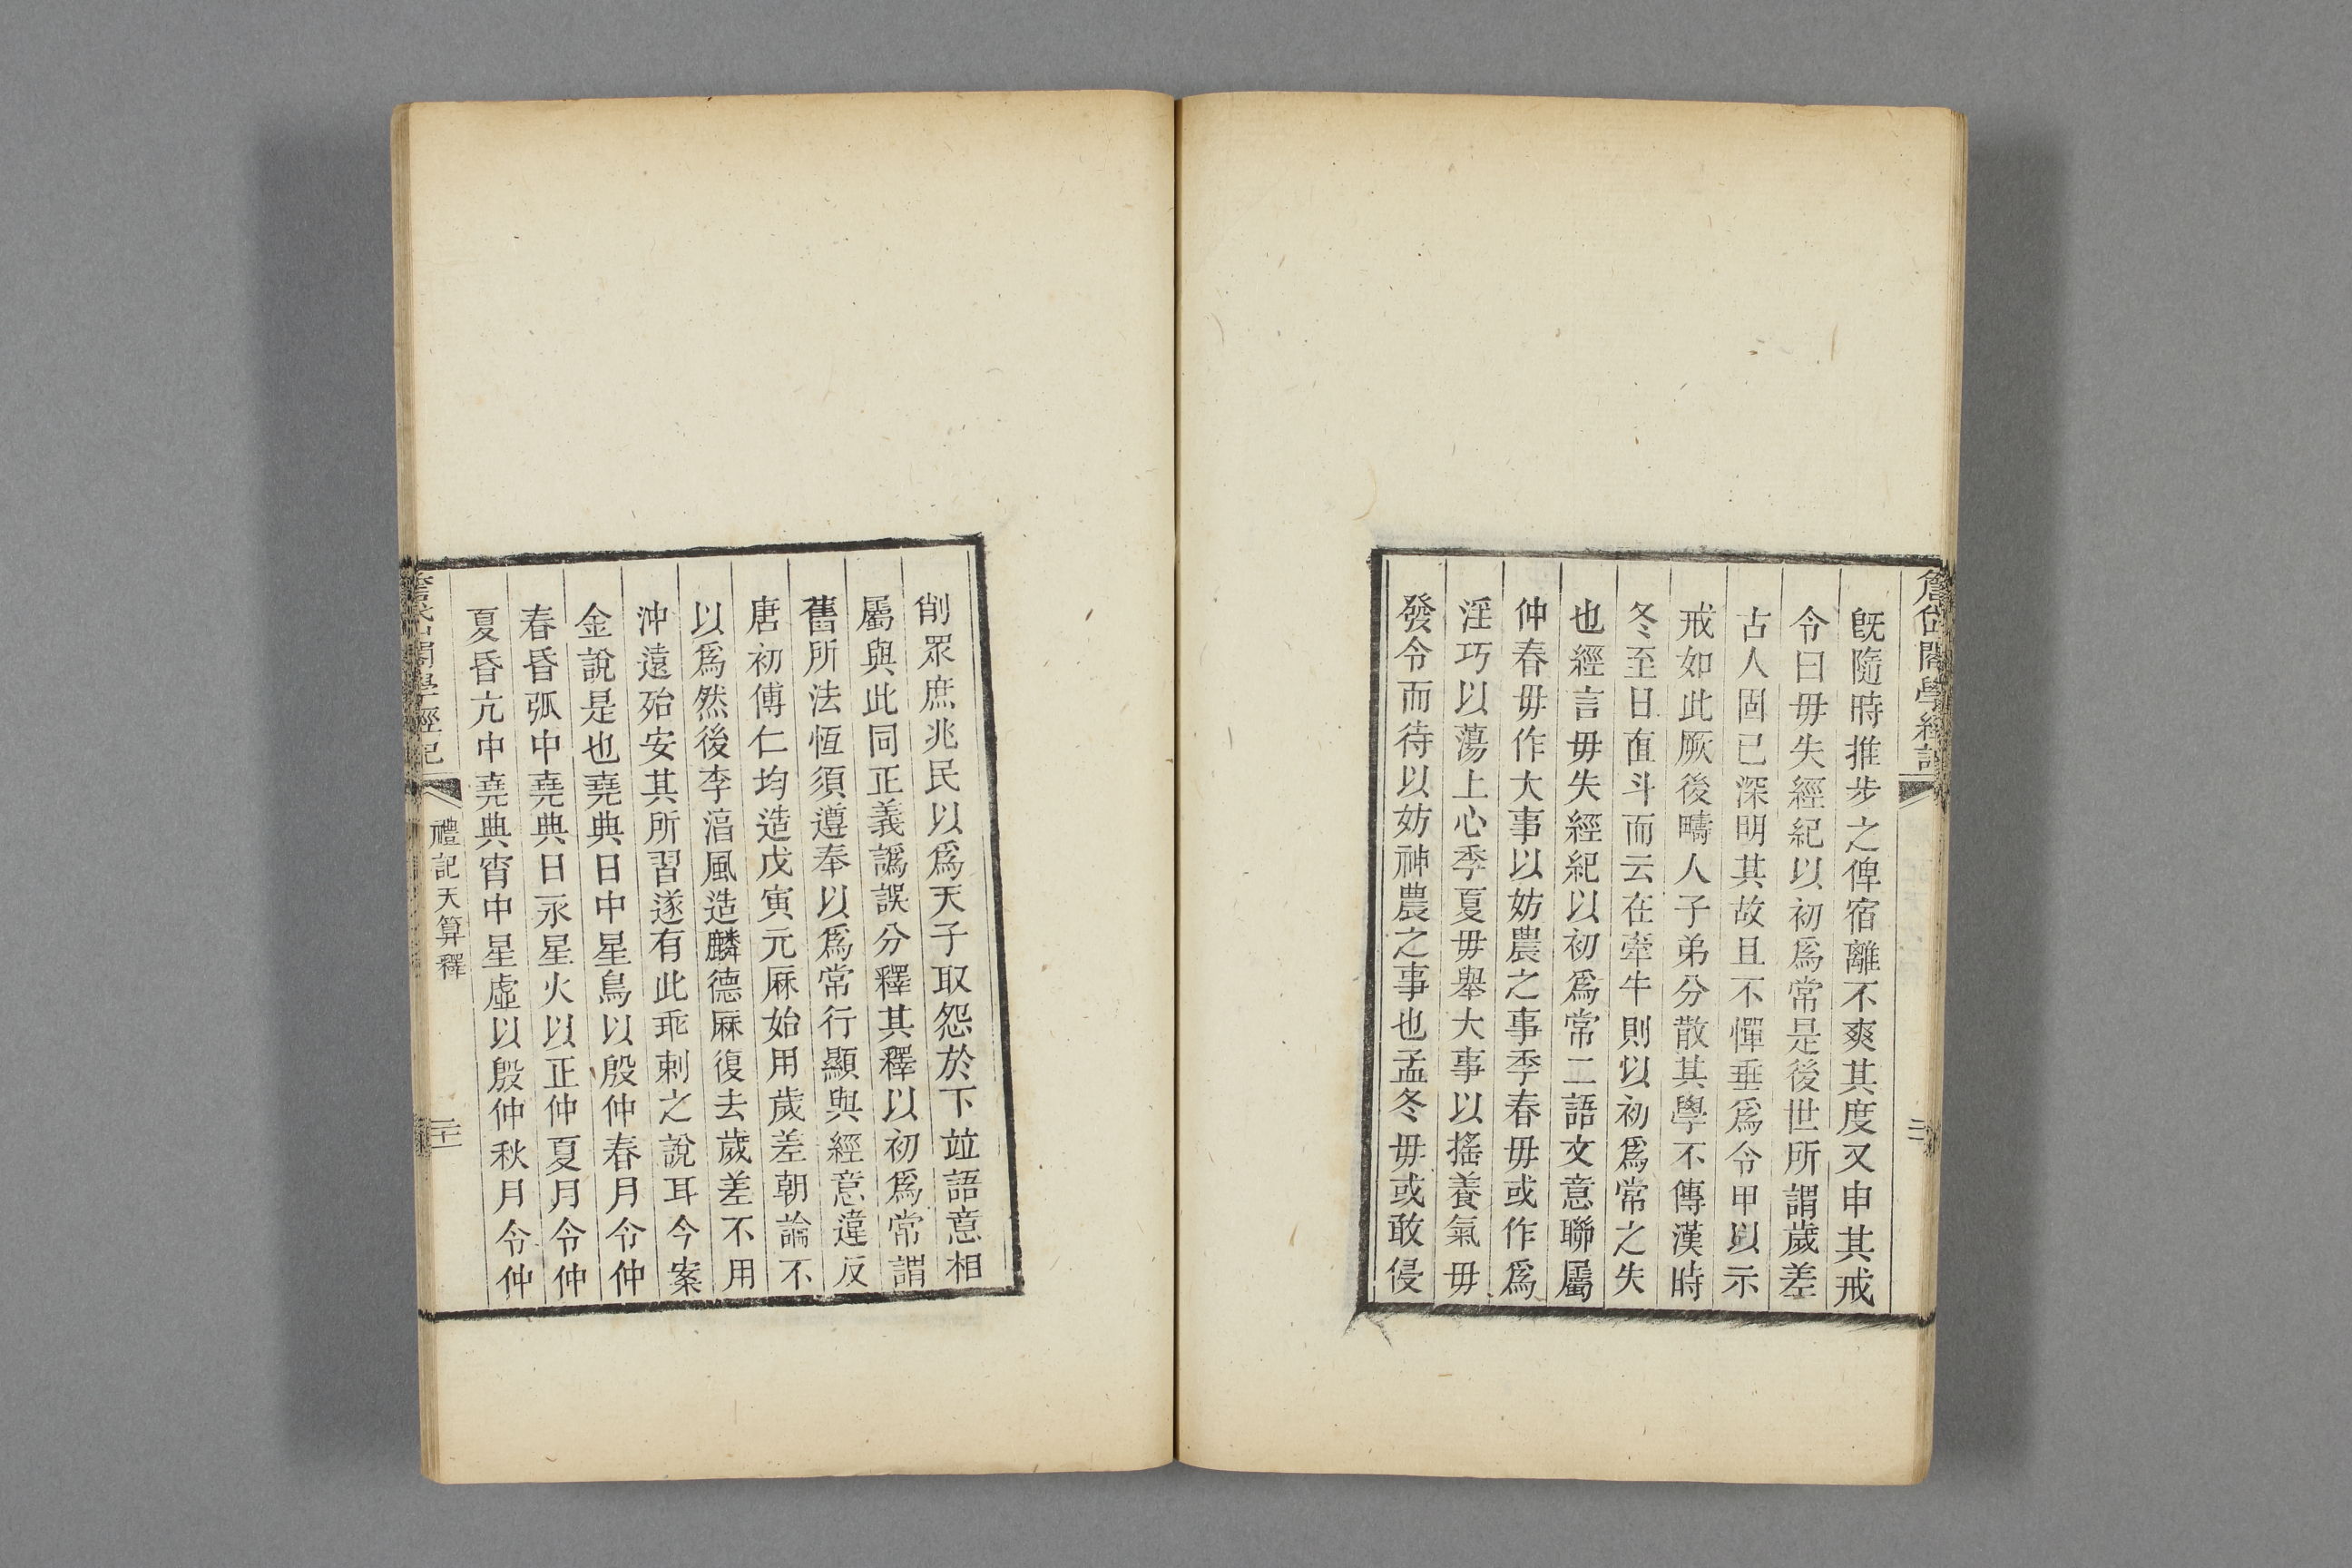 既隨時推步之俾宿離不爽其度又申其戒
令曰毋失經紀以初爲常是後世所謂歲差
古人固已深明其故且不憚垂爲令甲以示
戒如此厥後疇人子弟分散其學不傳漢時
冬至日直斗而云在牽牛則以初爲常之失
也經言毋失經紀以初爲常二語文意聯屬
仲春毋作大事以妨農之事季春毋或作爲
淫巧以蕩上心季夏毋舉大事以搖養氣毋
發令而待以妨神農之事也孟冬毋或敢侵
削眾庶兆民以爲天子取怨於下竝語意相
屬與此同正義譌誤分釋其釋以初爲常謂
舊所法恆須遵奉以爲常行顯與經意違反
唐初傅仁均造戊寅元厤始用歲差朝論不
以爲然後李淳風造麟德厤復去歲差不用
沖遠殆安其所習遂有此乖剌之說耳今案
金說是也堯典日中星鳥以殷仲春月令仲
春昏弧中堯典日永星火以正仲夏月令仲
夏昏亢中堯典宵中星虛以殷仲秋月令仲
禮記天算釋